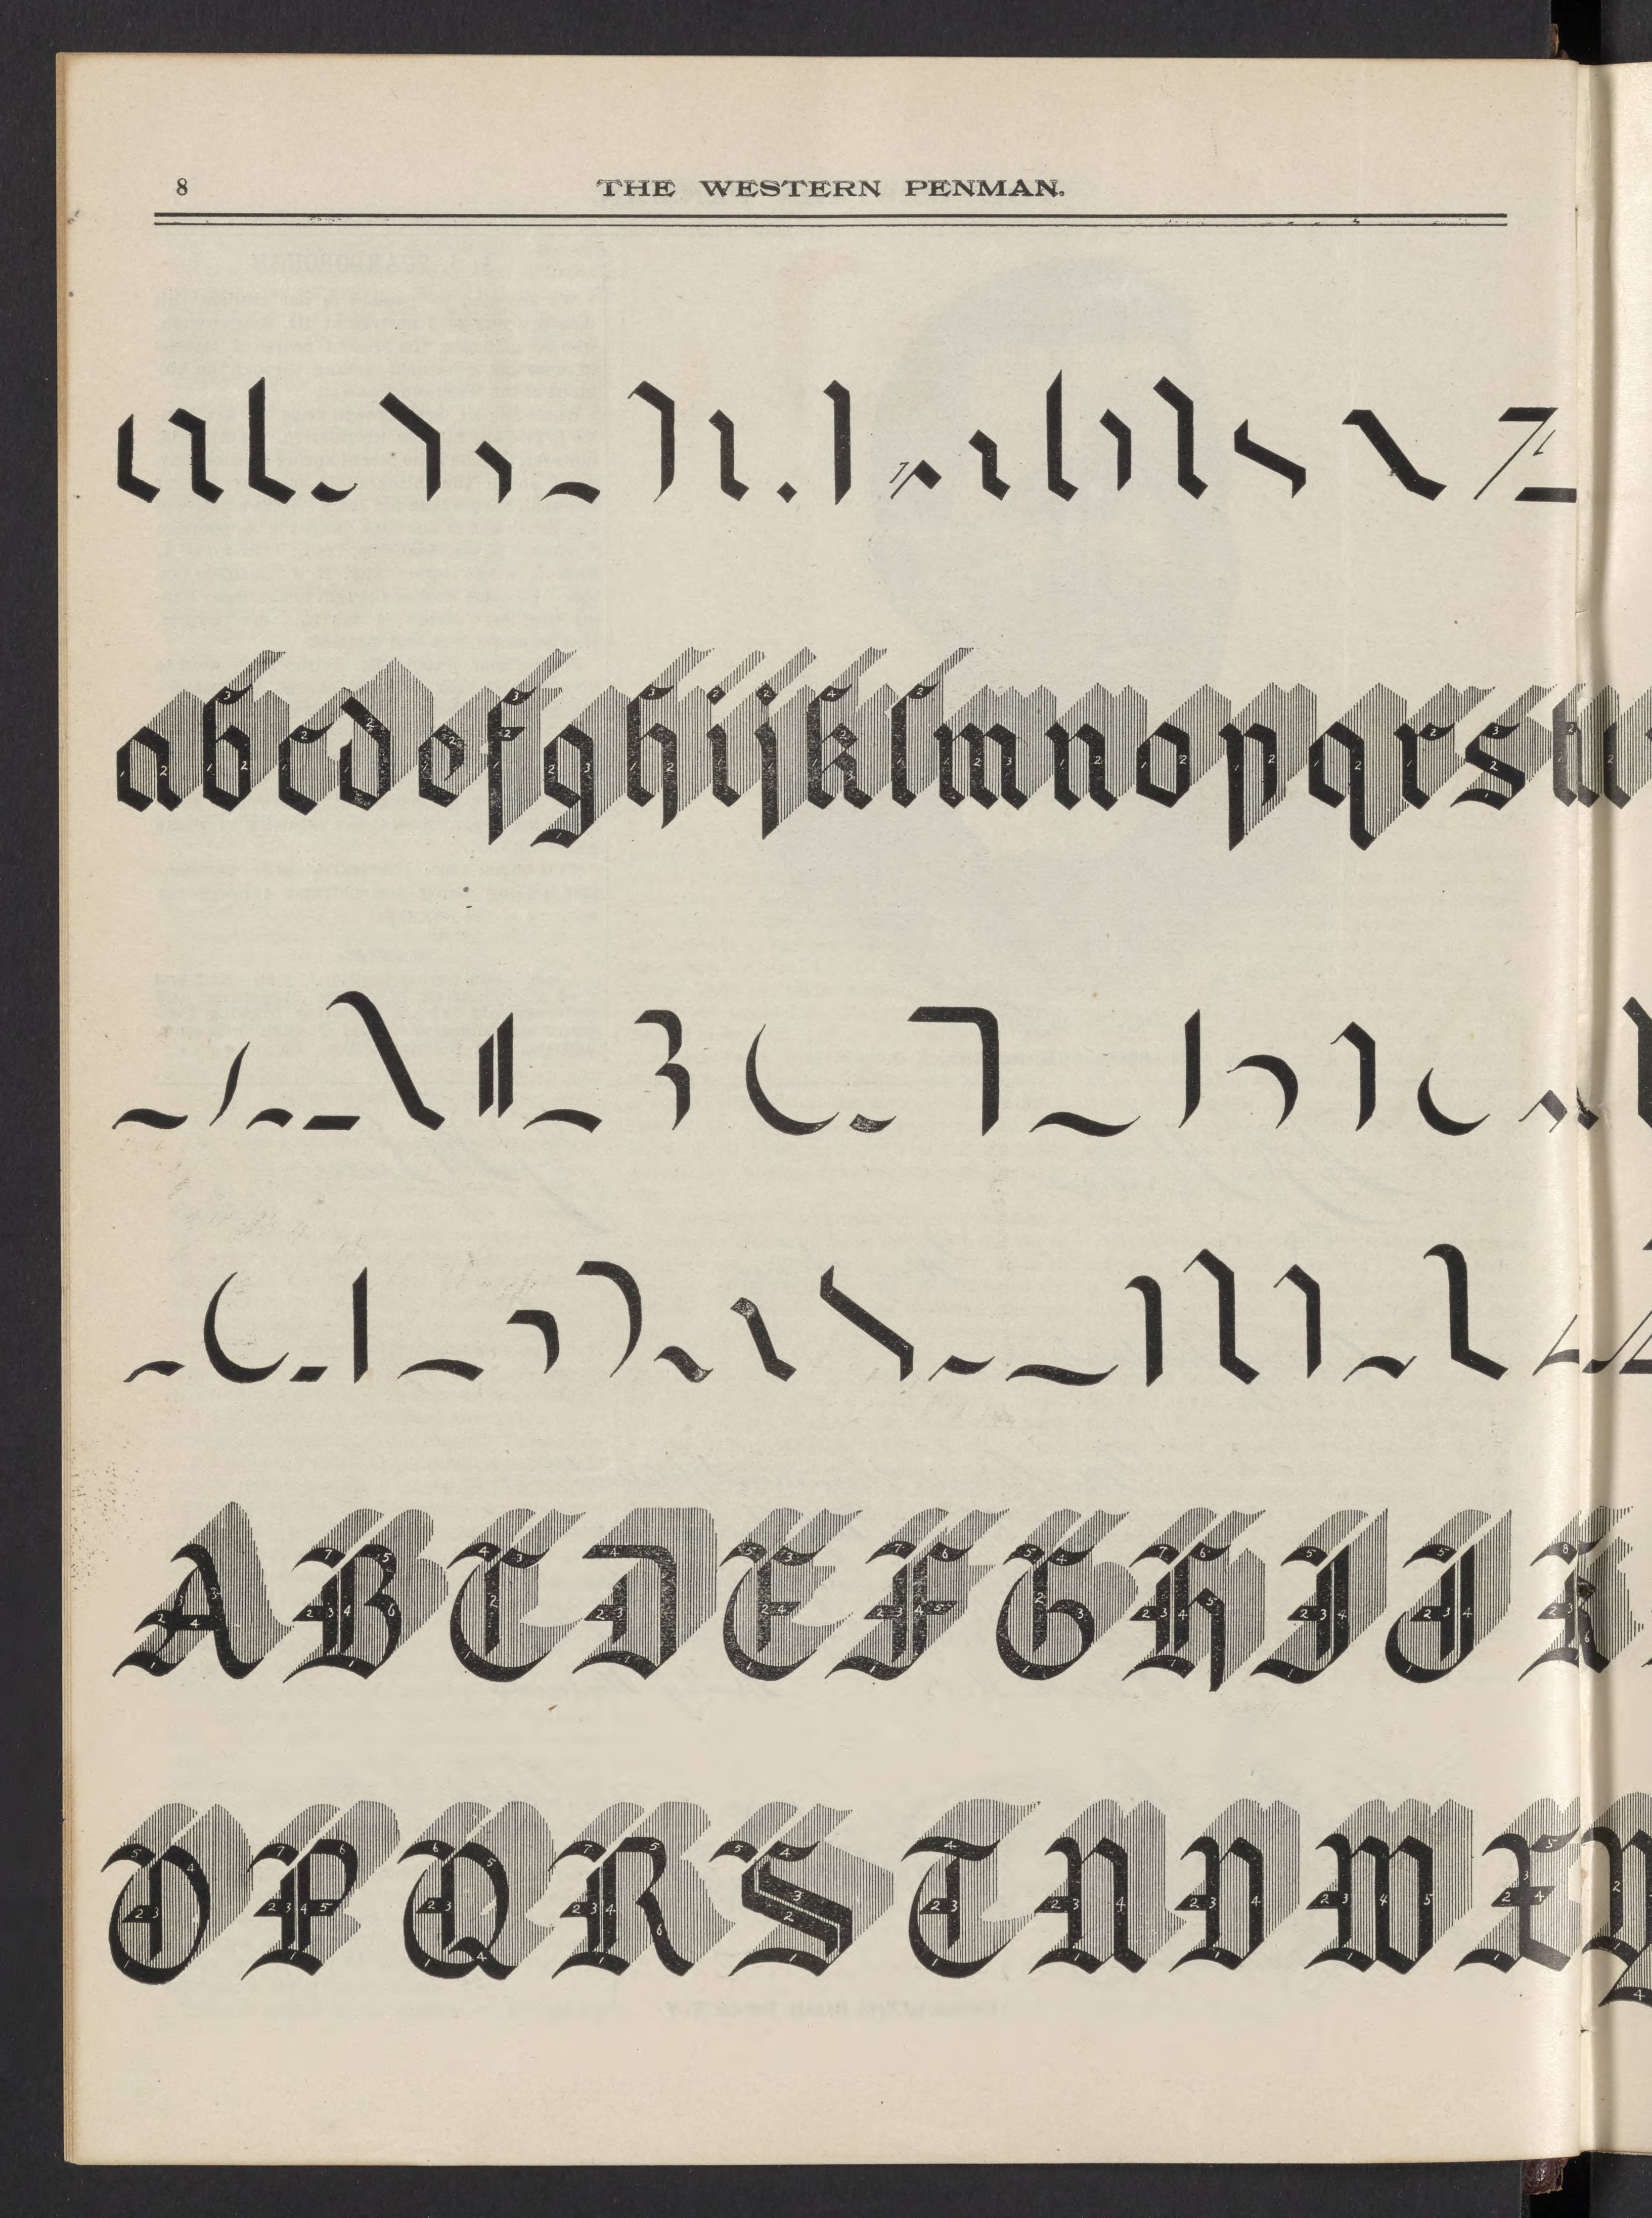 8 THE WESTERN PENMAN.
a b c d e f g h i j k l m n o p q r s t u
A B C D E F G H I J K
O P Q R S T U V W X Y